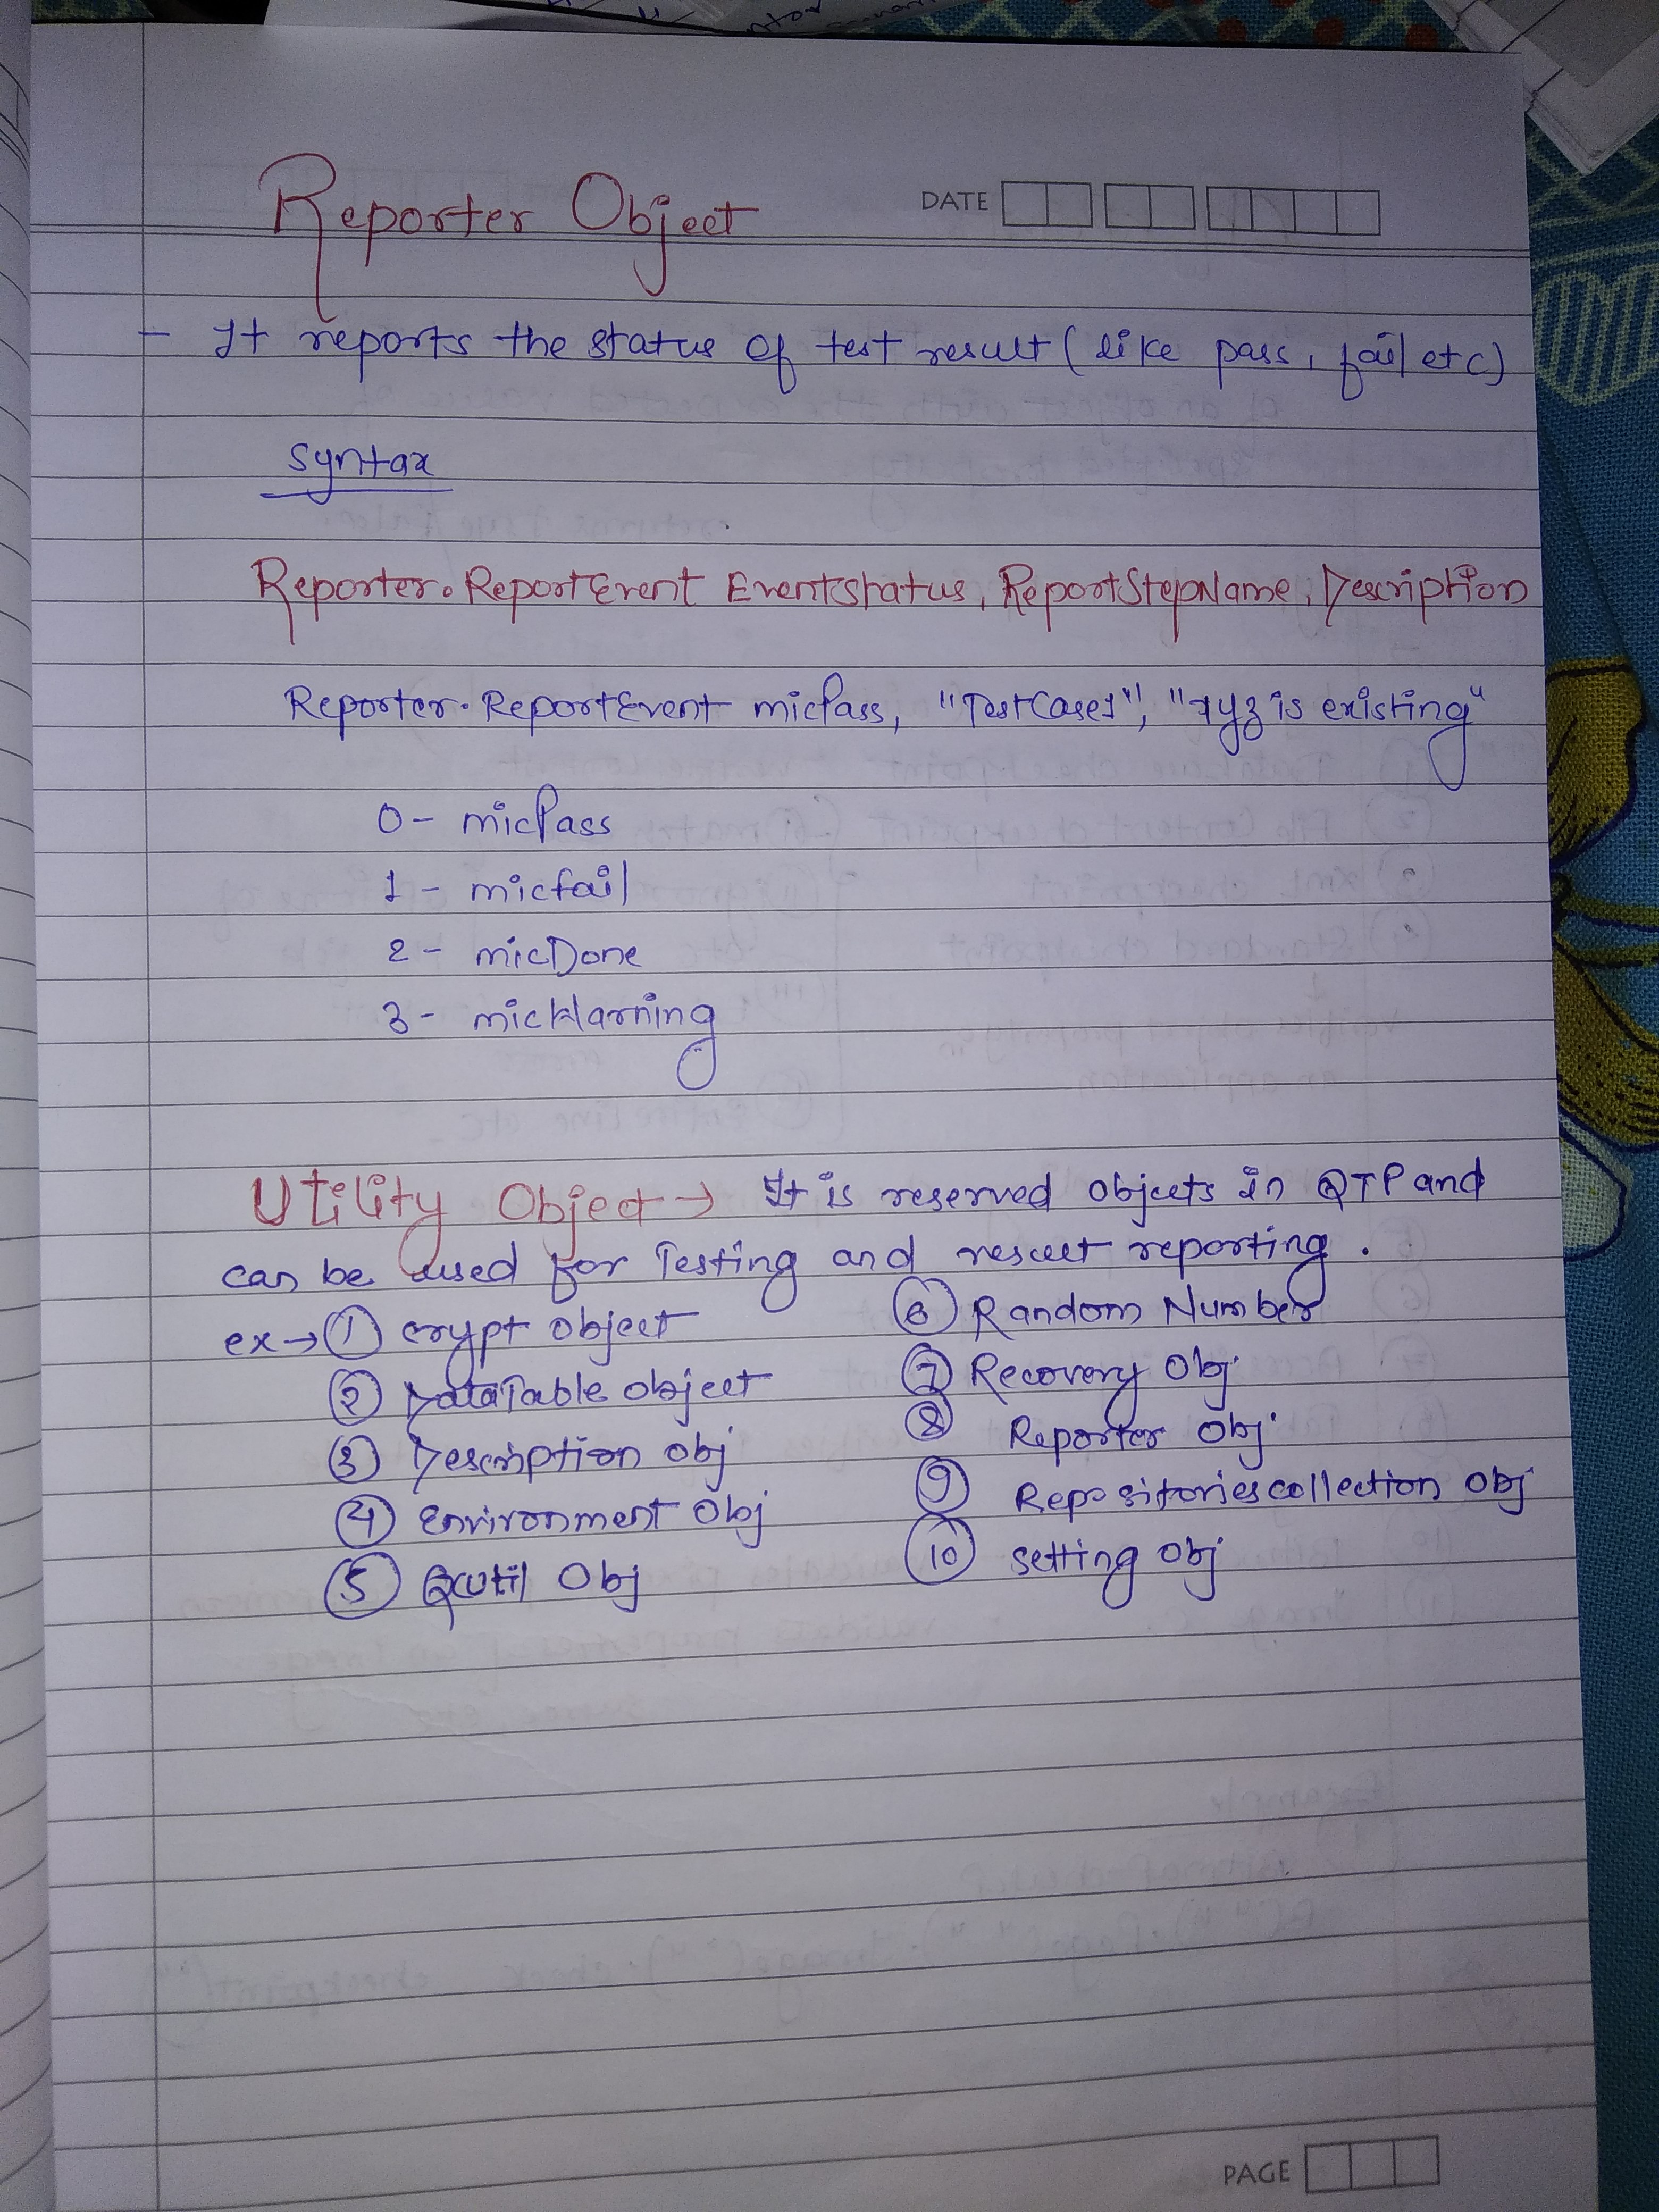 Reporter Object
DATE
- It reports the status of test result (like pass, fail etc)
Syntax
Reporter.ReportEvent EventStatus, ReportStepName, Description
Reporter.ReportEvent micPass, "TestCase1", "xyz is existing"
0 - micPass
1 - micfail
2 - micDone
3 - micWarning
Utility Object → It is reserved objects in QTP and
can be used for Testing and result reporting.
ex → ① crypt object
② DataTable object
③ Description obj
④ Environment Obj
⑤ QCUtil Obj
⑥ Random Number
⑦ Recovery Obj
⑧ Reporter Obj
⑨ Repositoriescollection Obj
⑩ setting Obj
PAGE